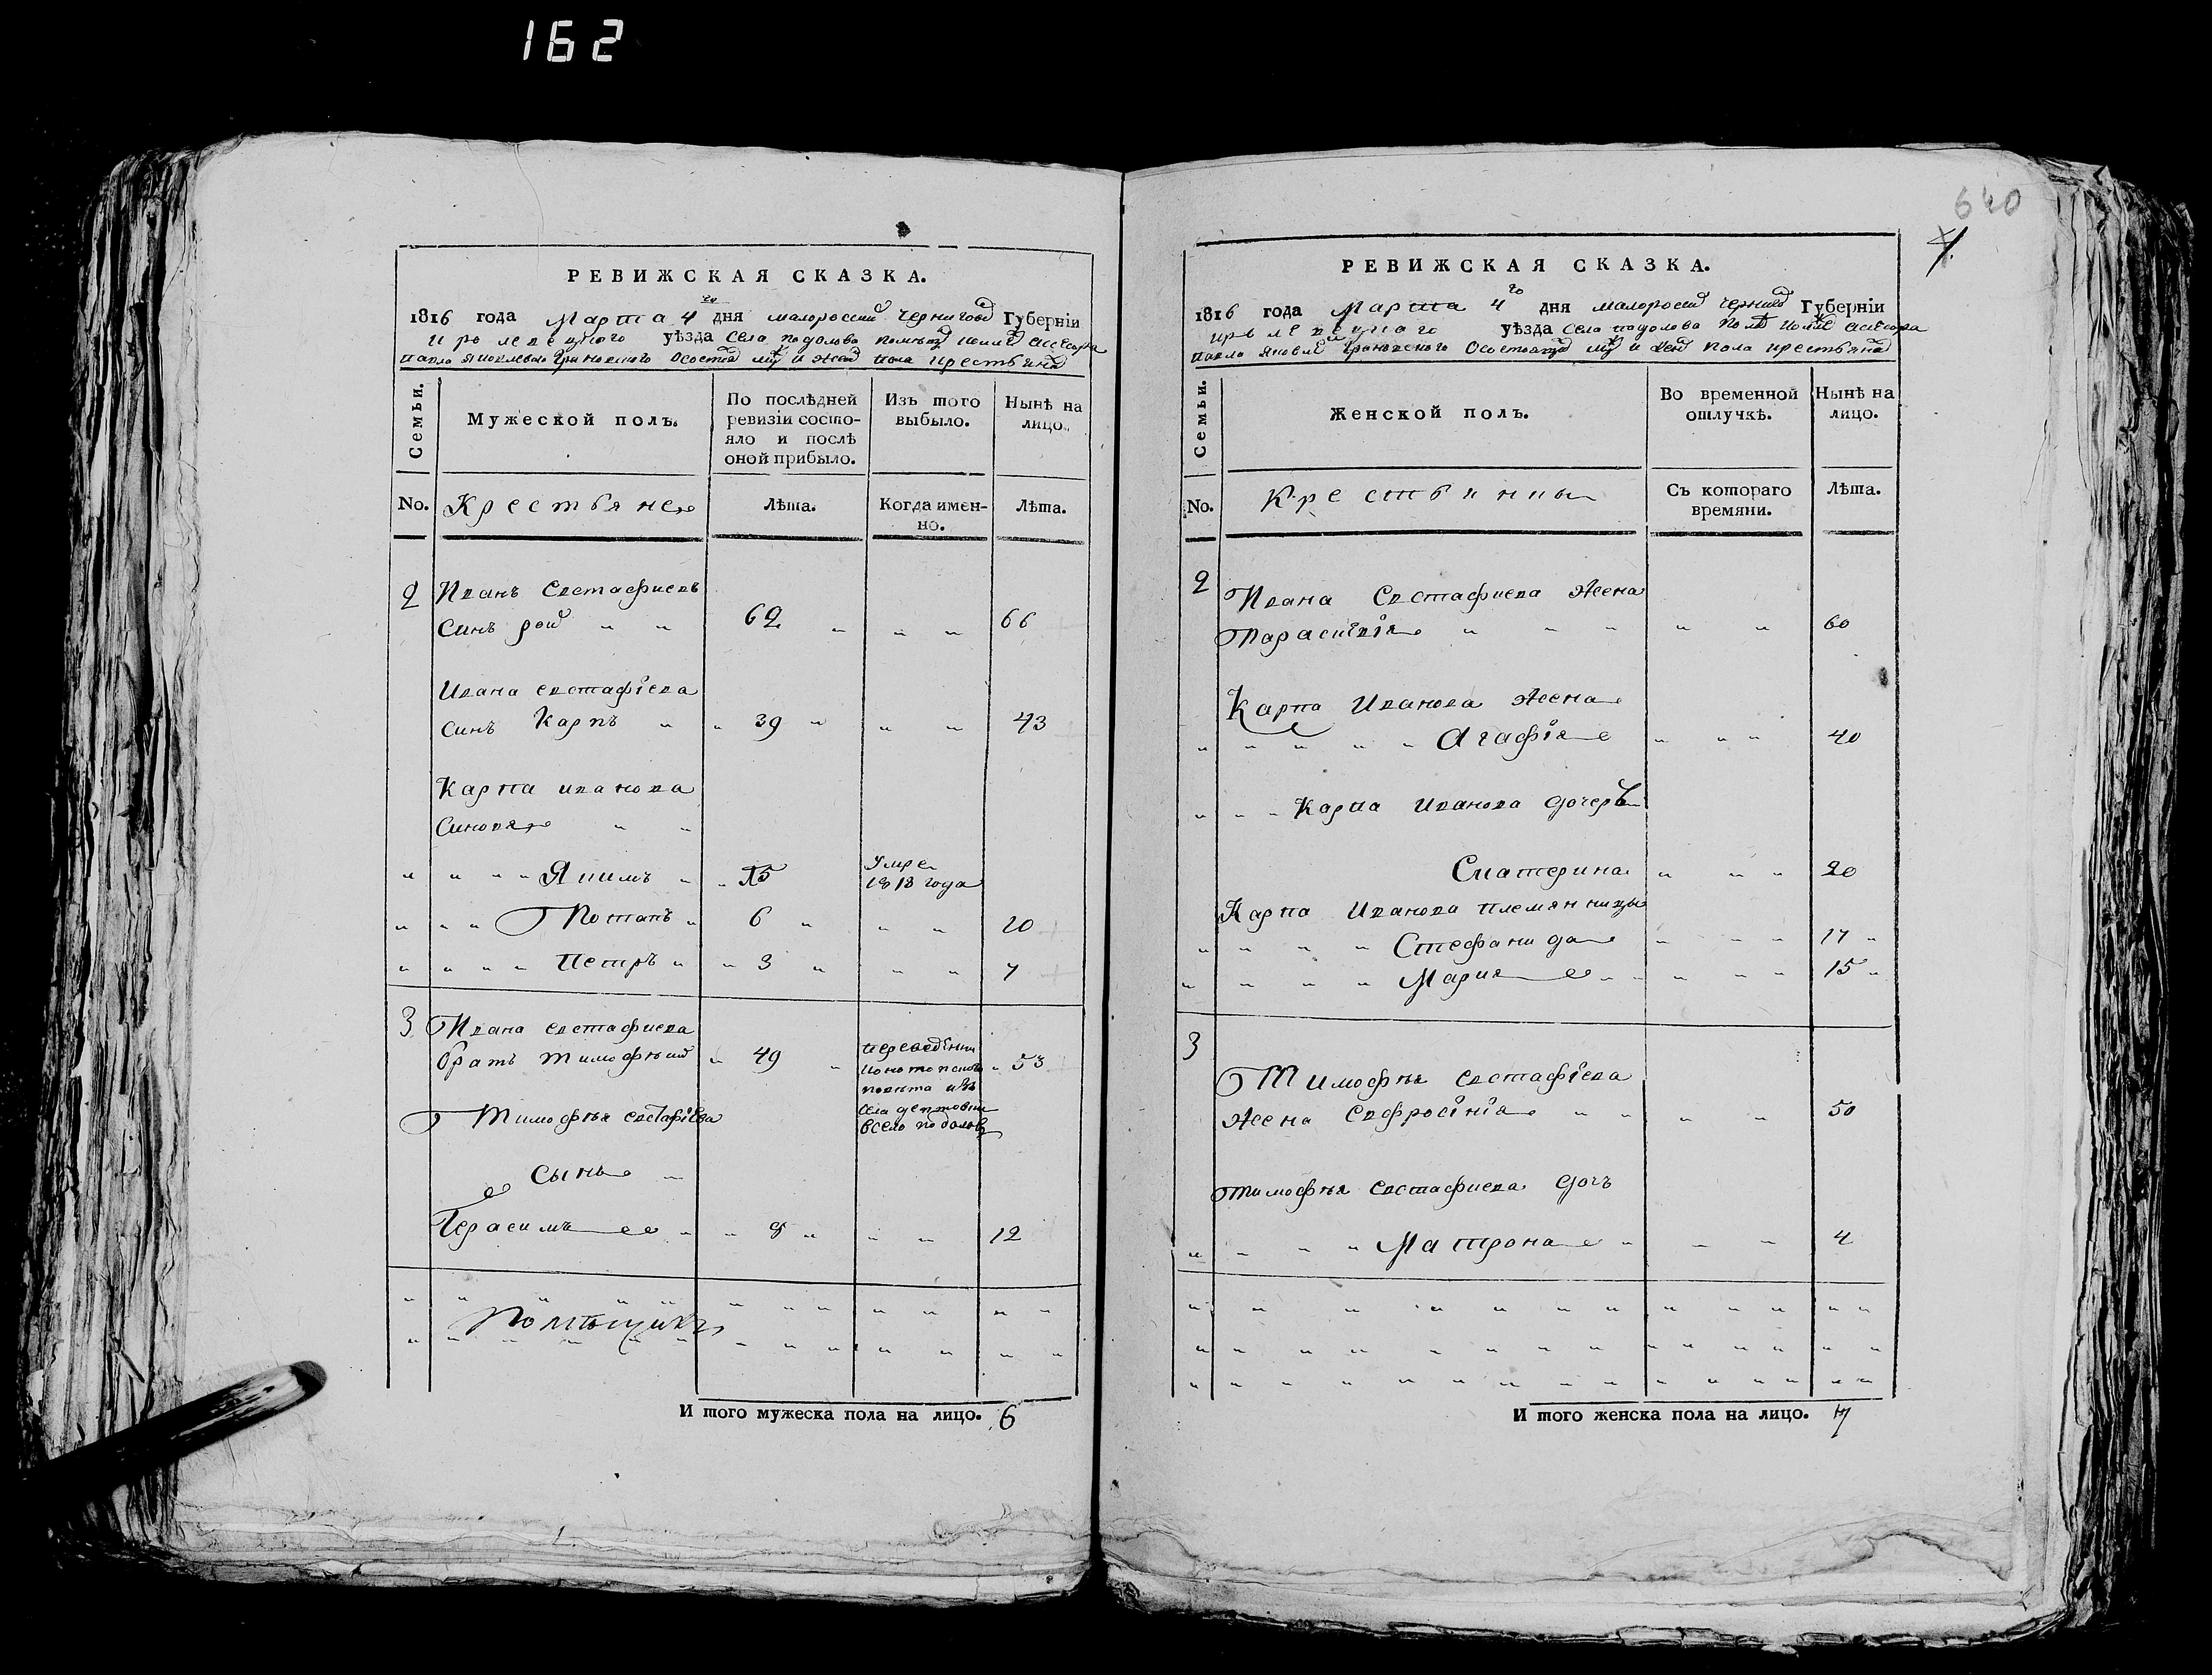 162
640
РЕВИЖСКАЯ СКАЗКА.
1816 года Марта 4 го дня малоросий Чернигов Губерніи
кролевецкого уѣзда села подолова помѣщ колле асесора
павла яковлева Грановского о состоя муж и жен пола крестьянах
Семьи.
Мужеской полъ.
По послѣдней ревизіи состояло и послѣ оной прибыло.
Изъ того выбыло.
Нынѣ на лицо.
No.
Крестьяне
Лѣта.
Когда имен-
но.
Лѣта.
2 Иванъ Евстафиевъ
синъ 62 66
Ивана евстафіева
синъ Карпъ 39 43
Карпа иванова
Синовя
Якимъ 15 Умре 1813 года
Потапъ 6 10
Петръ 3 7
3 Ивана евстафиева
братъ тимофѣий 49 53
переведенъ
Конотопского
повѣта изъ
села дептовки
всело подолов
Тимофѣя евстафіева
сынъ
Герасимъ 8 12
Помѣщикъ
И того мужеска пола на лицо. 6
РЕВИЖСКАЯ СКАЗКА.
1816 года Марта 4 го дня малоросий Чернигов Губерніи
кролевецкаго уѣзда села подолова помѣ колле асесора
павла яковле Грановского о состоящ муж и жен пола крестьянах
Семьи.
Женской полъ.
Во временной
отлучкѣ.
Нынѣ на
лицо.
No.
Крестьянки
Съ котораго
времяни.
Лѣта.
2 Ивана Евстафиева жена
Параскевія 60
Карпа Иванова жена
Агафія 40
Карпа Иванова дочеръ
Екатерина 20
Карпа Иванова племянницы
Стефанида 17
Мария 15
3
Тимофѣя евстафіева
жена Евфросінія 50
Тимофѣя Евстафиева дочь
Матрона 4
И того женска пола на лицо. 7